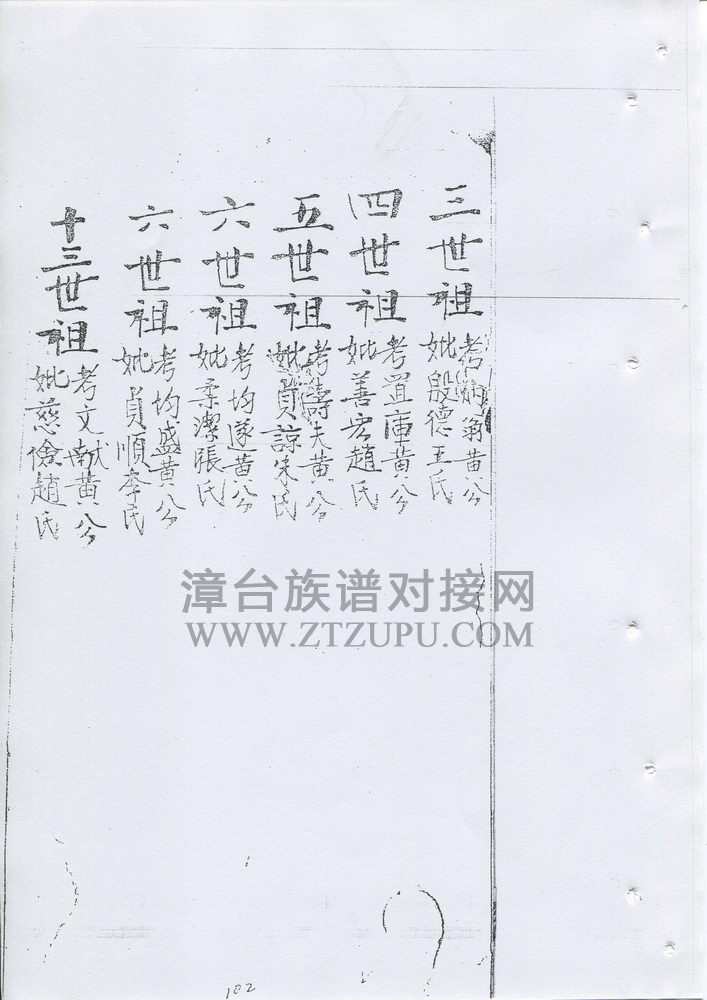 三世祖
考 翁黃公
妣殷德王氏
四世祖
考置庫黃公
妣善宏趙氏
五世祖
考壽夫黃公
妣貞諒朱氏
六世祖
考均遂黃公
妣柔潔張氏
六世祖
考均盛黃公
妣貞順李氏
十三世祖
考文献黃公
妣慈儉趙氏
漳台族谱对接网
WWW.ZTZUPU.COM
102